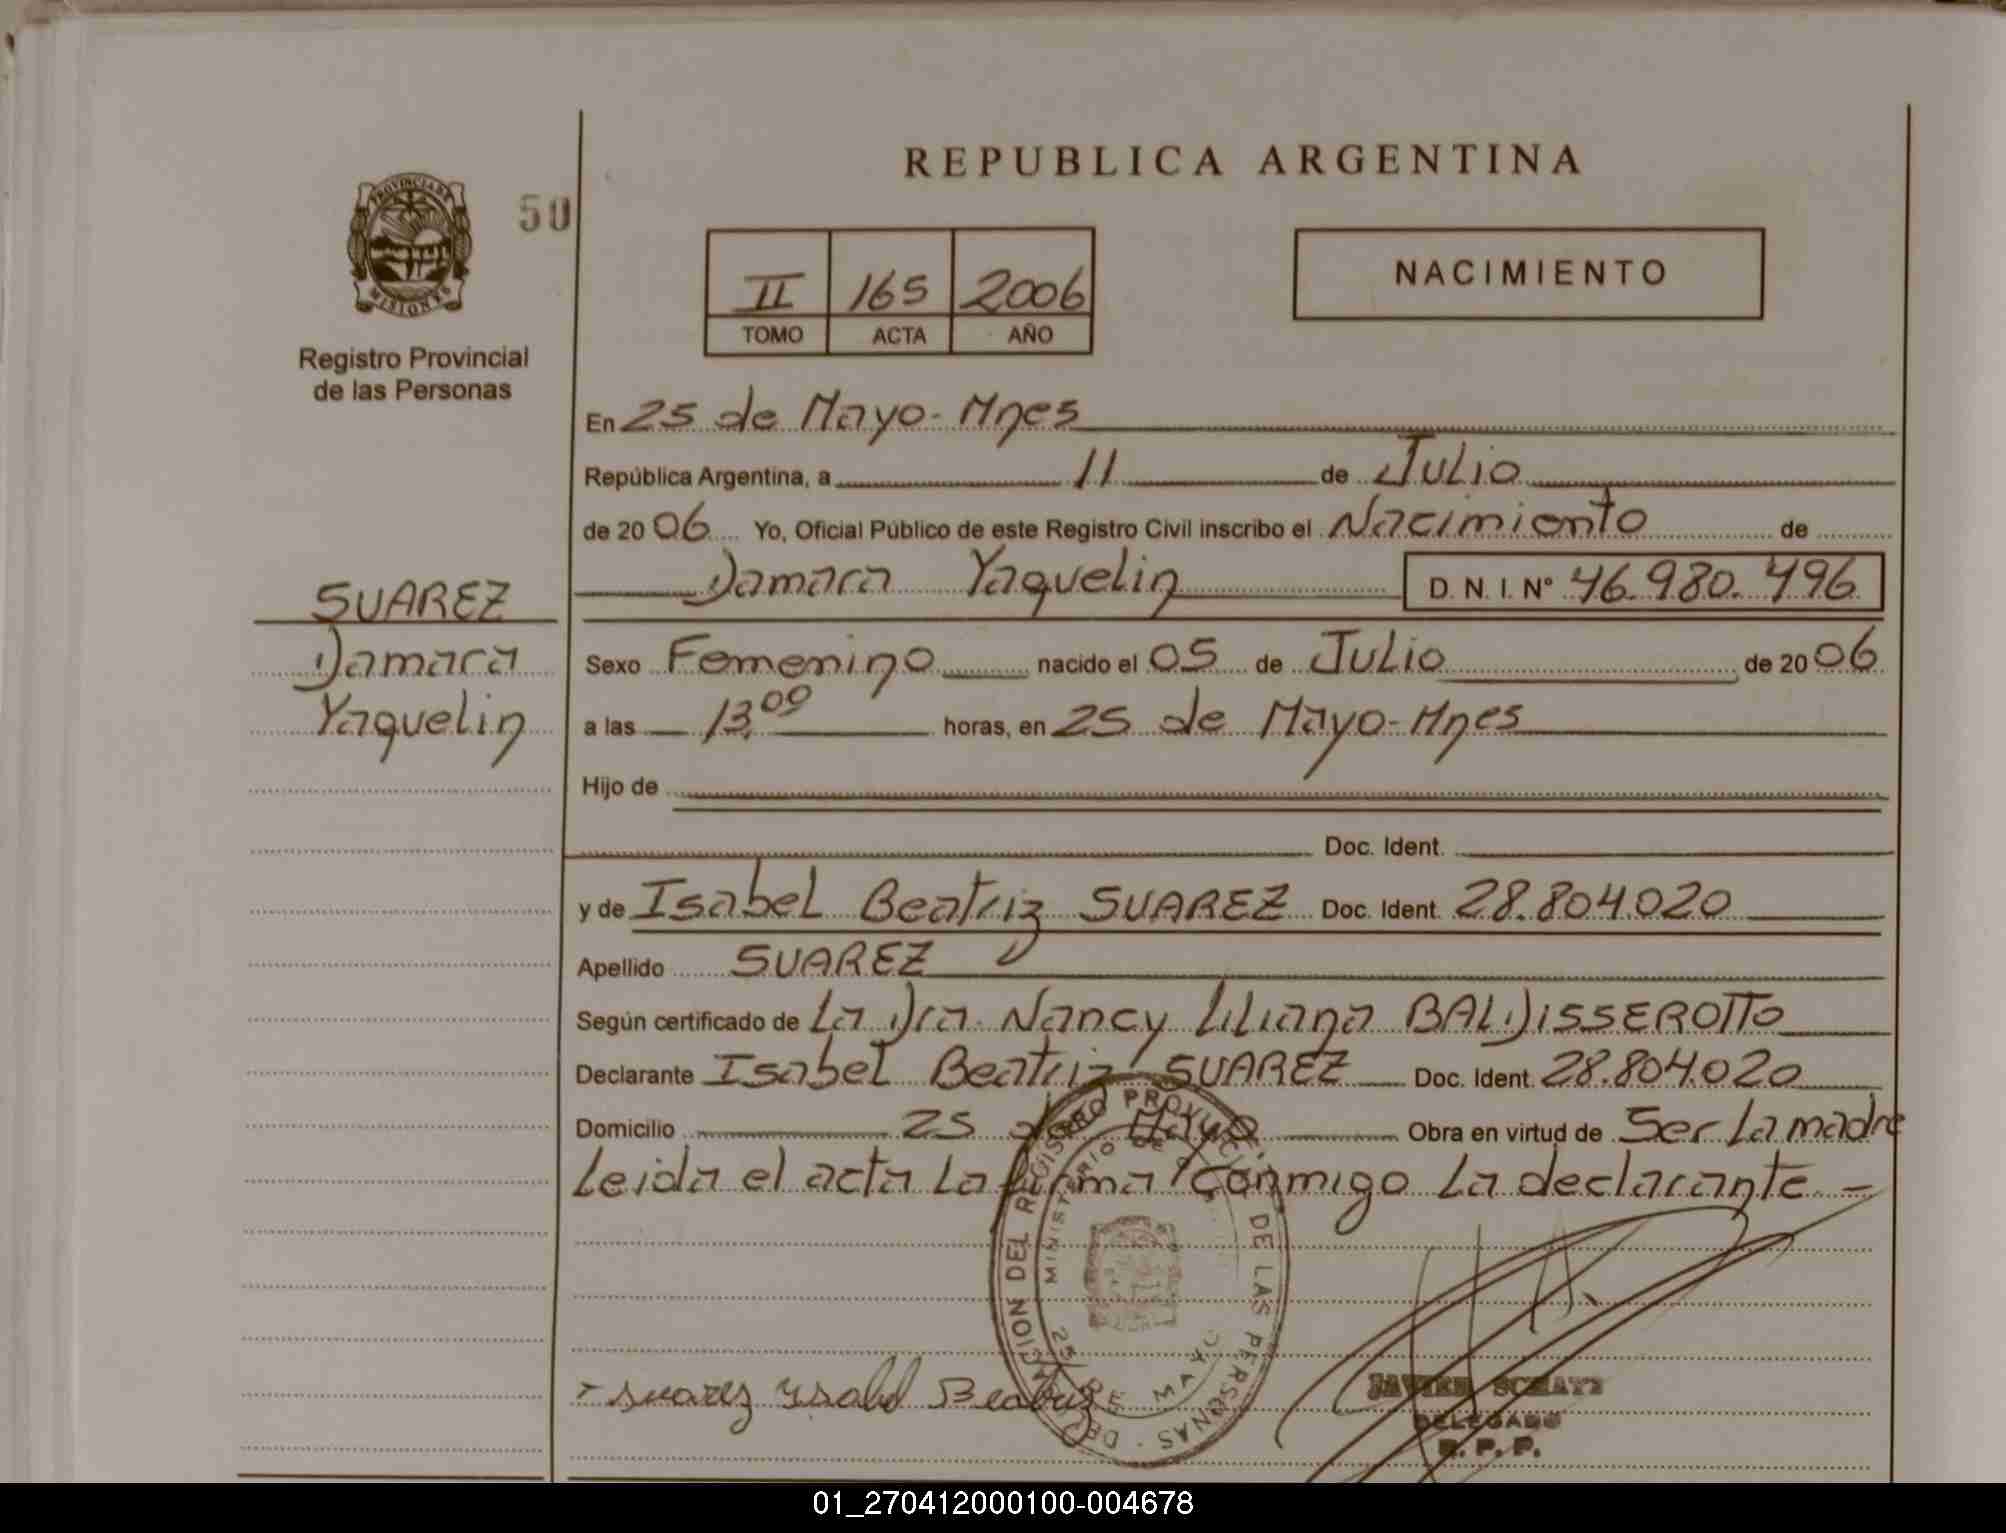 REPUBLICA ARGENTINA
PROVINCIA DE
MISIONES
50
Registro Provincial
de las Personas
II 165 2006
TOMO ACTA AÑO
NACIMIENTO
En 25 de Mayo - Mnes
República Argentina, a 11 de Julio
de 2006 Yo, Oficial Público de este Registro Civil inscribo el Nacimiento de
Damara Yaquelin D. N. I. N° 46.980.496
SUAREZ
Damara
Yaquelin
Sexo Femenino nacido el 05 de Julio de 2006
a las 13,00 horas, en 25 de Mayo - Mnes
Hijo de
Doc. Ident.
y de Isabel Beatriz SUAREZ Doc. Ident. 28.804.020
Apellido SUAREZ
Según certificado de La Dra. Nancy Liliana BALDISSEROTTO
Declarante Isabel Beatriz SUAREZ Doc. Ident. 28.804.020
Domicilio 25 de Mayo Obra en virtud de Ser La madre
Leida el acta La firma conmigo La declarante -
DELEGACION DEL REGISTRO PROVINCIAL DE LAS PERSONAS
MINISTERIO DE
25 DE MAYO
Suarez Ysabel Beatriz
JAVIER SCHATZ
DELEGADO
R. P. P.
01_270412000100-004678